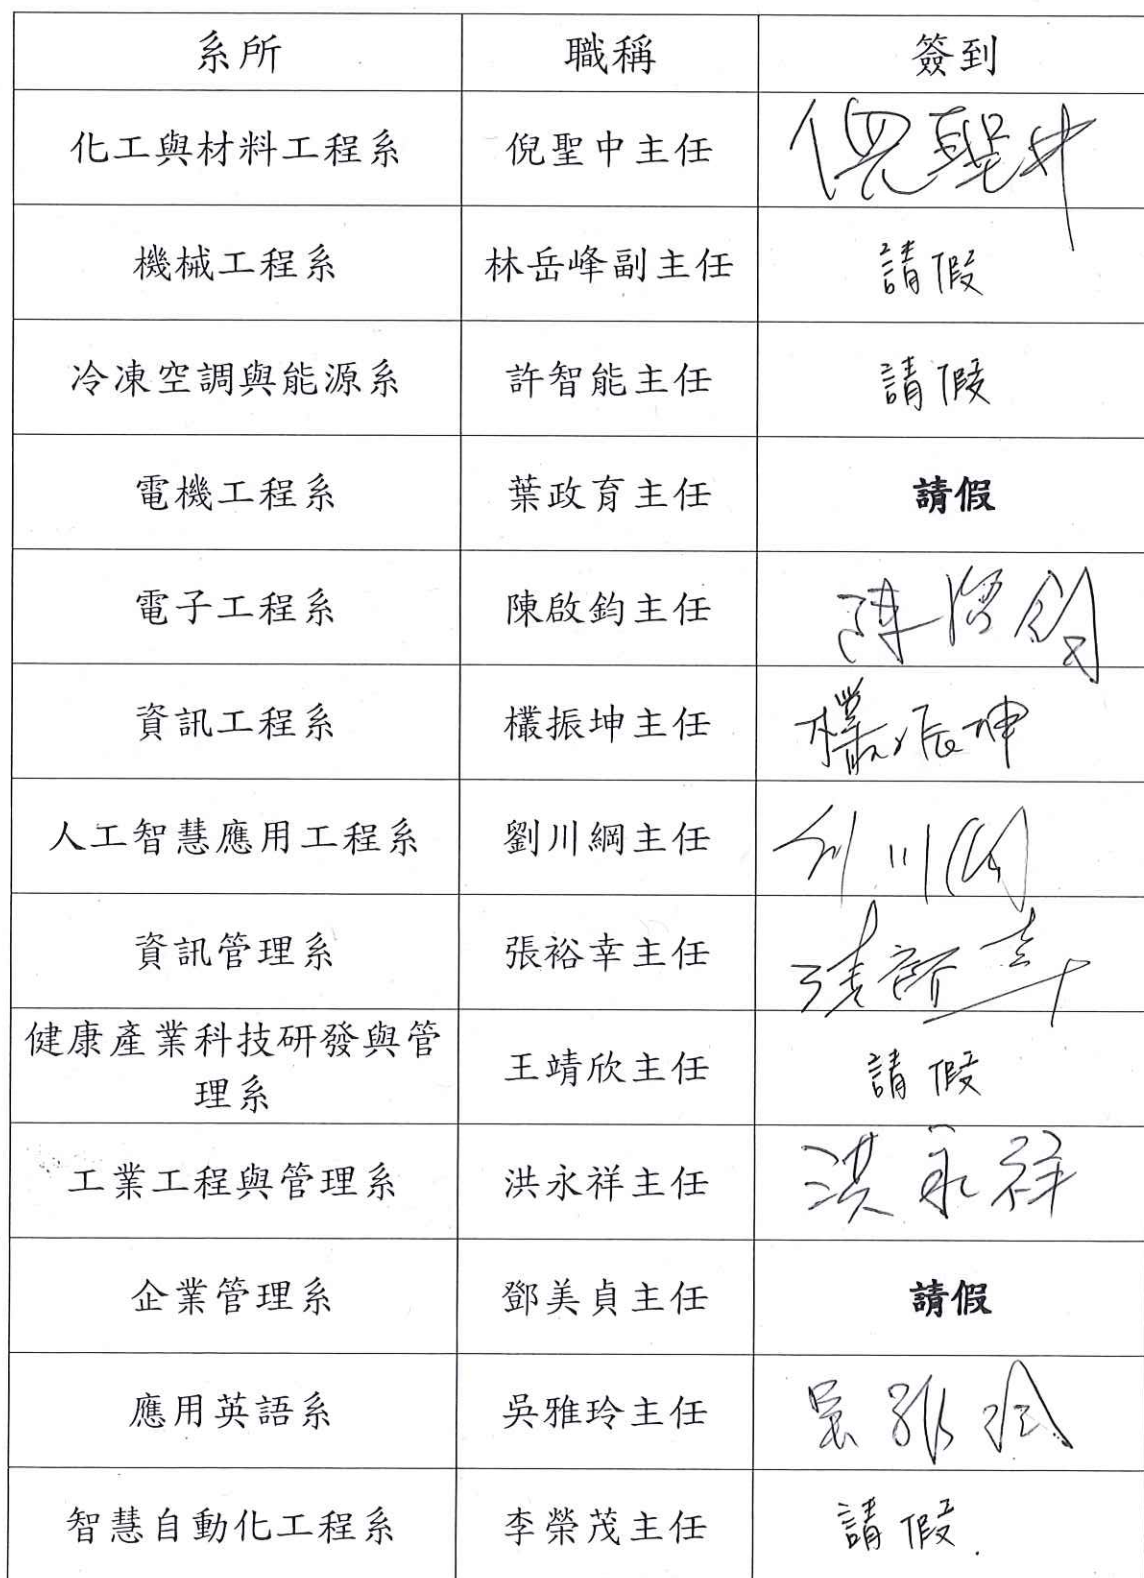 系所 職稱 簽到
化工與材料工程系 倪聖中主任 倪聖中
機械工程系 林岳峰副主任 請假
冷凍空調與能源系 許智能主任 請假
電機工程系 葉政育主任 請假
電子工程系 陳啟鈞主任 陳啟鈞
資訊工程系 欉振坤主任 欉振坤
人工智慧應用工程系 劉川綱主任 刘川綱
資訊管理系 張裕幸主任 張裕幸
健康產業科技研發與管
理系 王靖欣主任 請假
工業工程與管理系 洪永祥主任 洪永祥
企業管理系 鄧美貞主任 請假
應用英語系 吳雅玲主任 吳雅玲
智慧自動化工程系 李榮茂主任 請假.